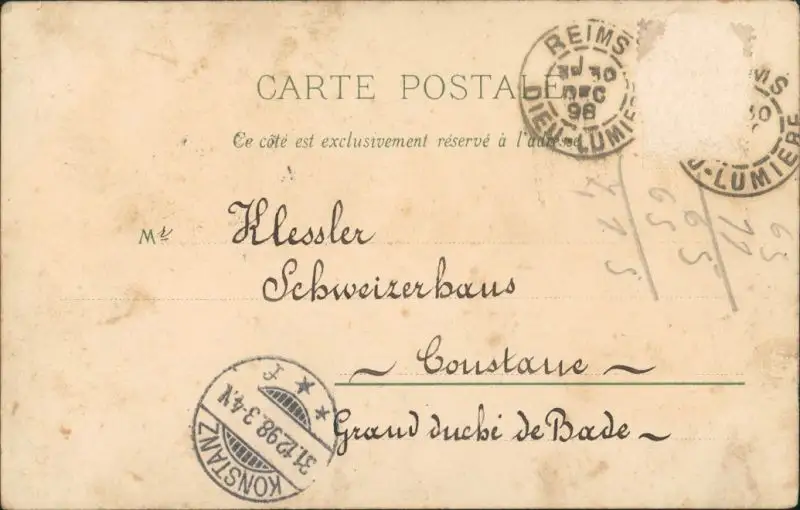 CARTE POSTALE
Ce côté est exclusivement réservé à l'adresse
REIMS
30
DEC
98
DIEU-LUMIERE
MS
30
U-LUMIERE
Mr Klessler
Schweizerhaus
~ Constane ~
Grand duché de Bade ~
KONSTANZ
31.12.98.3-4.N
* * f
65
12
65
65